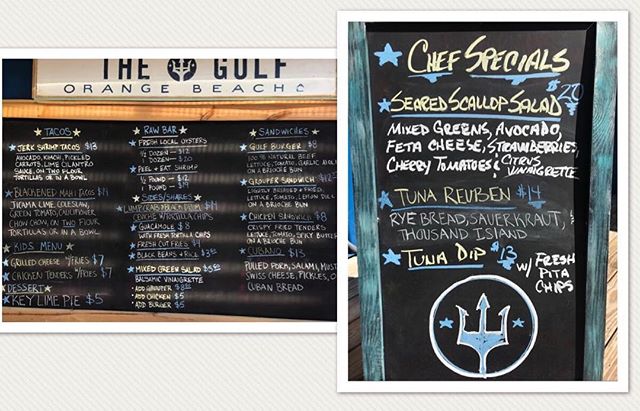 THE GULF
ORANGE BEACH
TACOS
JERK SHRIMP TACOS $13
AVOCADO, KIMCHI, PICKLED
CARROTS, LIME CILANTRO
SAUCE, ON TWO FLOUR
TORTILLAS OR IN A BOWL
BLACKENED MAHI TACOS $14
JICAMA LIME COLESLAW,
GREEN TOMATO, CAULIFLOWER
CHOW CHOW, ON TWO FLOUR
TORTILLAS OR IN A BOWL
KIDS MENU
GRILLED CHEESE W/FRIES $7
CHICKEN TENDERS W/FRIES $7
DESSERT
KEY LIME PIE $5
RAW BAR
FRESH LOCAL OYSTERS
1/2 DOZEN - $12
1 DOZEN - $20
PEEL + EAT SHRIMP
1/2 POUND - $12
1 POUND - $19
SIDES/SHARES
CEVICHE W/TORTILLA CHIPS
GUACAMOLE $8
WITH FRESH TORTILLA CHIPS
FRESH CUT FRIES $4
BLACK BEANS + RICE
MIXED GREEN SALAD
BALSAMIC VINAIGRETTE
ADD GROUPER
ADD CHICKEN $5
ADD BURGER $5
SANDWICHES
GULF BURGER $8
100% NATURAL BEEF
LETTUCE, TOMATO, GARLIC
ON A BRIOCHE BUN
GROUPER SANDWICH
LIGHTLY BREADED + FRIED,
LETTUCE, TOMATO, LEMON DILL
ON A BRIOCHE BUN
CHICKEN SANDWICH $8
CRISPY FRIED TENDERS
LETTUCE, TOMATO,
ON A BRIOCHE BUN
CUBANO $13
PULLED PORK, SALAMI,
SWISS CHEESE, PICKLES,
CUBAN BREAD
CHEF SPECIALS
SEARED SCALLOP SALAD $20
MIXED GREENS, AVOCADO,
FETA CHEESE, STRAWBERRIES,
CHERRY TOMATOES & CITRUS
VINAIGRETTE
TUNA REUBEN $14
RYE BREAD, SAUERKRAUT,
THOUSAND ISLAND
TUNA DIP $13
W/ FRESH
PITA
CHIPS